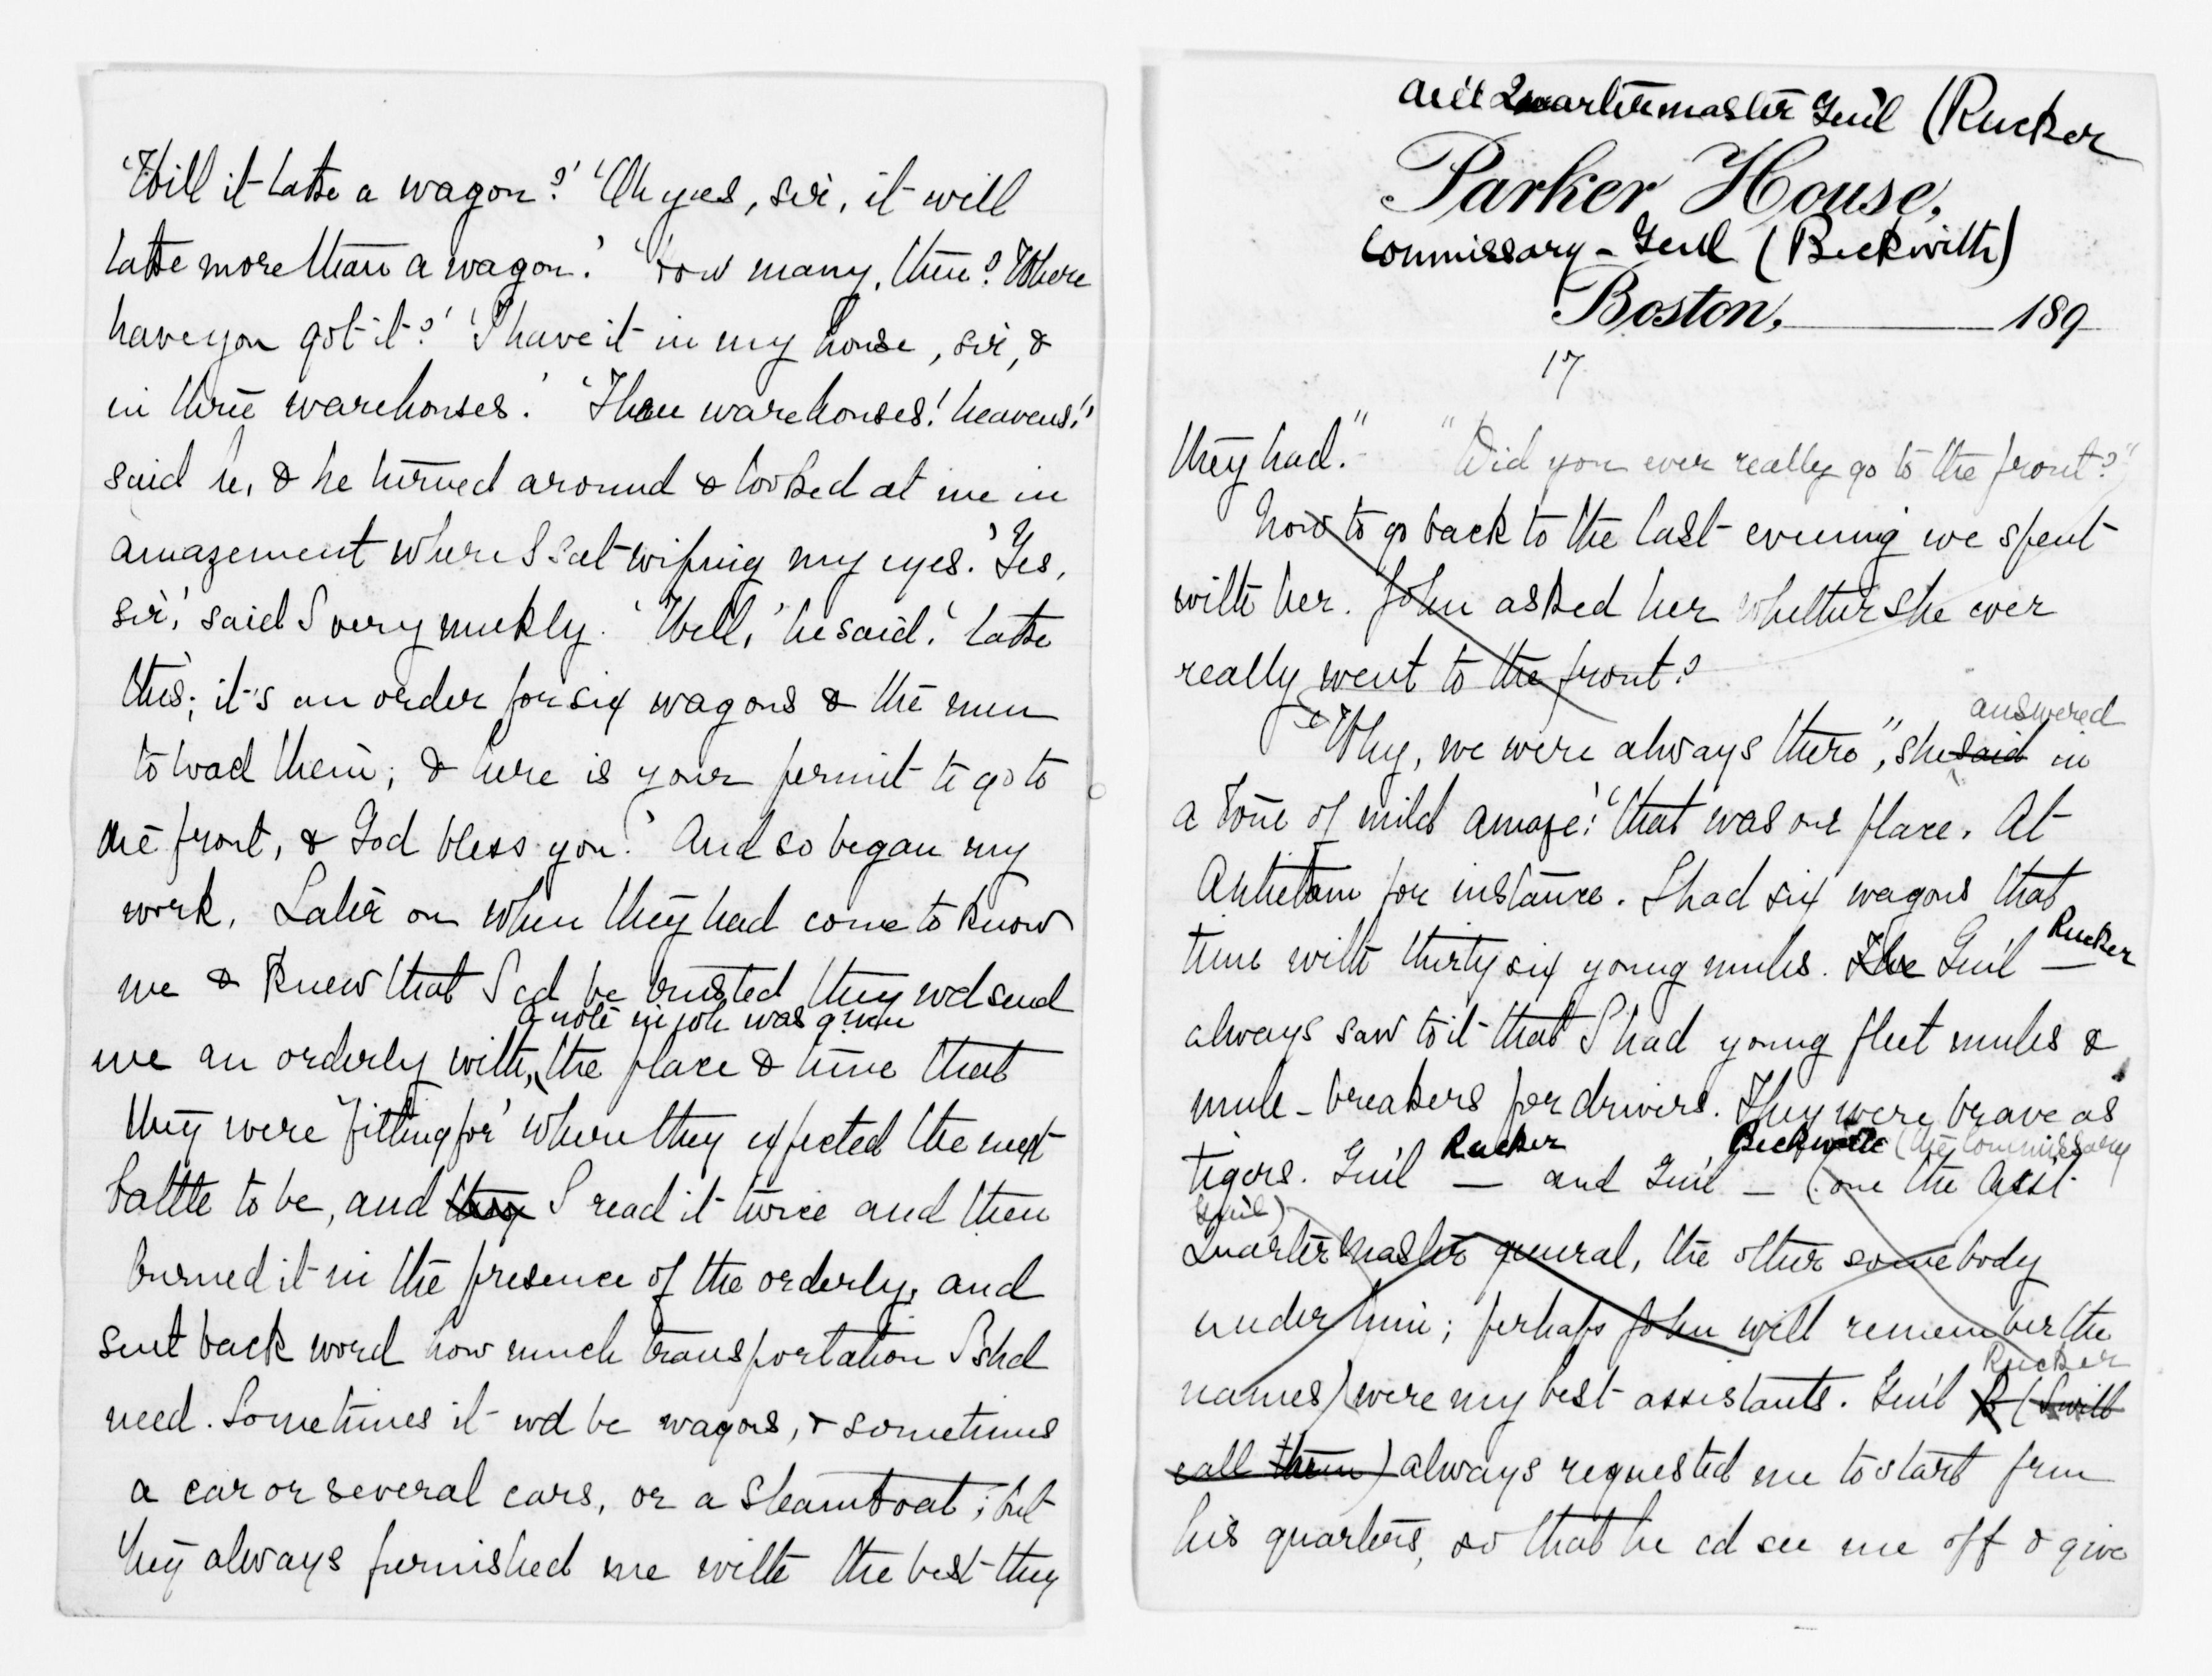 'Will it take a wagon?' 'Oh yes, sir, it will
take more than a wagon.' 'How many, then? Where
have you got it?' 'I have it in my house, sir, &
in three warehouses.' 'Three warehouses! heavens!'
said he, & he turned around & looked at me in
amazement where I sat wiping my eyes. 'Yes,
sir,' said I very meekly. 'Well,' he said, 'take
this; it's an order for six wagons & the men
to load them; & here is your permit to go to
the front, & God bless you.' And so began my
work. Later on when they had come to know
me & knew that I cd be trusted they wd send
a note in wh was given
me an orderly with, the place & time that
they were 'fitting for' where they expected the next
battle to be, and they I read it twice and then
burned it in the presence of the orderly, and
sent back word how much transportation I shd
need. Sometimes it wd be wagons, & sometimes
a car or several cars, or a steamboat; but
they always furnished me with the best they
Ass't Quartermaster Gen'l (Rucker
Parker House,
Commissary-Gen'l (Beckwith)
Boston, 189
17
they had." "Did you ever really go to the front?"
Now to go back to the last evening we spent
with her. John asked her whether she ever
really went to the front?
answered
"Why, we were always there", she said in
a tone of mild amaze: "that was our place. At
Antietam for instance. I had six wagons that
time with thirty six young mules. The Gen'l — Rucker
always saw to it that I had young fleet mules &
mule-breakers for drivers. They were brave as
Rucker Beckwith (the Commissary
tigers. Gen'l — and Gen'l — (one the Asst.
Gen'l)
Quartermaster general, the other somebody
under him; perhaps John will remember the
Rucker
names) were my best assistants. Gen'l R (I will
call them) always requested me to start from
his quarters, so that he cd see me off & give